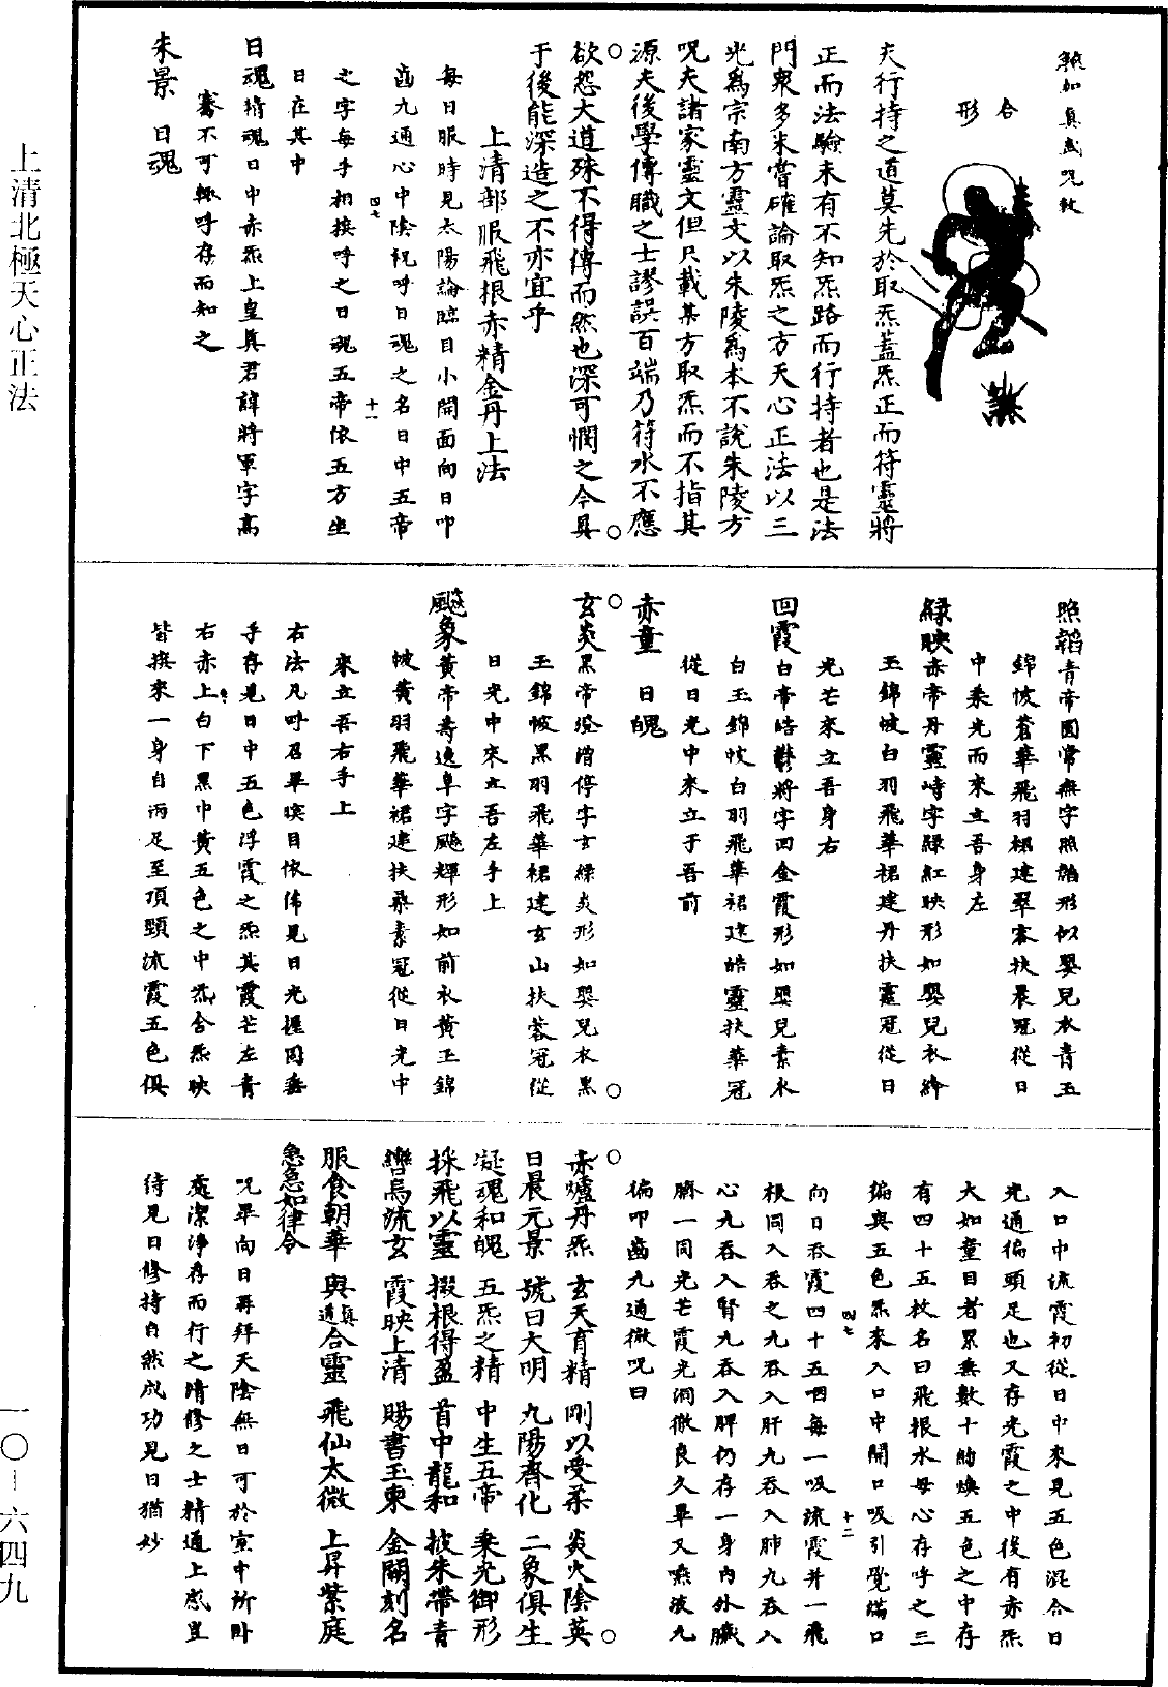 上清北極天心正法
一〇－六四九
加真武咒敕
合
形
夫行持之道莫先於取炁蓋炁正而符靈將
正而法驗未有不知炁路而行持者也是法
門衆多未嘗確論取炁之方天心正法以三
光為宗南方靈文以朱陵為本不說朱陵方
呪夫諸家靈文但只載某方取炁而不指其
源夫後學傳職之士謬誤百端乃符水不應
欲怨大道殊不得傳而然也深可憫之今具
于後能深造之不亦宜乎
上清部服飛根赤精金丹上法
每日服時見太陽論臨目小開面向日叩
齒九通心中陰祝呼日魂之名日中五帝
四七
十一
之字每手相挨呼之日魂五帝依五方坐
日在其中
日魂精魂日中赤炁上皇真君諱將軍字高
騫不可輒呼存而知之
朱景　日魂
照韜青帝圓常無字照韜形似嬰兒衣青玉
錦帔蒼華飛羽裙建翠容扶晨冠從日
中乘光而來立吾身左
綠映赤帝丹靈峙字綠紅映形如嬰兒衣絳
玉錦帔白羽飛華裙建丹扶靈冠從日
光芒來立吾身右
回霞白帝皓鬱將字回金霞形如嬰兒素衣
白玉錦帔白羽飛華裙建皓靈扶華冠
從日光中來立于吾前
赤童　日魄
玄炎黑帝澄增停字玄綠炎形如嬰兒衣黑
玉錦帔黑羽飛華裙建玄山扶蓉冠從
日光中來立吾左手上
飈象黃帝壽逸阜字飈輝形如前衣黃玉錦
帔黃羽飛華裙建扶桑素冠從日光中
來立吾右手上
右法凡呼召畢暝目依俙見日光握固垂
手存見日中五色浮霞之炁其霞芒左青
右赤上白下黑中黃五色之中炁含炁映
皆撲來一身自兩足至頂頸流霞五色俱
入口中流霞初從日中來見五色混合日
光通徧頭足也又存光霞之中後有赤炁
大如童目者累無數十餉煥五色之中存
有四十五枚名曰飛根水母心存呼之三
徧與五色炁來入口中開口吸引覺滿口
四七
十二
向日吞霞四十五咽每一吸流霞并一飛
根同入吞之九吞入肝九吞入肺九吞入
心九吞入腎九吞入脾仍存一身內外臟
腑一同光芒霞光洞徹良久畢又嚥液九
徧叩齒九通微呪曰
赤爐丹炁　玄天育精　剛以受柔　炎火陰英
日晨元景　號曰大明　九陽齊化　二象俱生
凝魂和魄　五炁之精　中生五帝　乘光御形
採飛以靈　掇根得盈　首巾龍和　披朱帶青
轡烏流玄　霞映上清　賜書玉柬　金闕刻名
服食朝華　與真道合靈　飛仙太微　上昇紫庭
急急如律令
呪畢向日再拜天陰無日可於京中所卧
處潔淨存而行之晴修之士精通上感豈
待見日修持自然成功見日猶妙